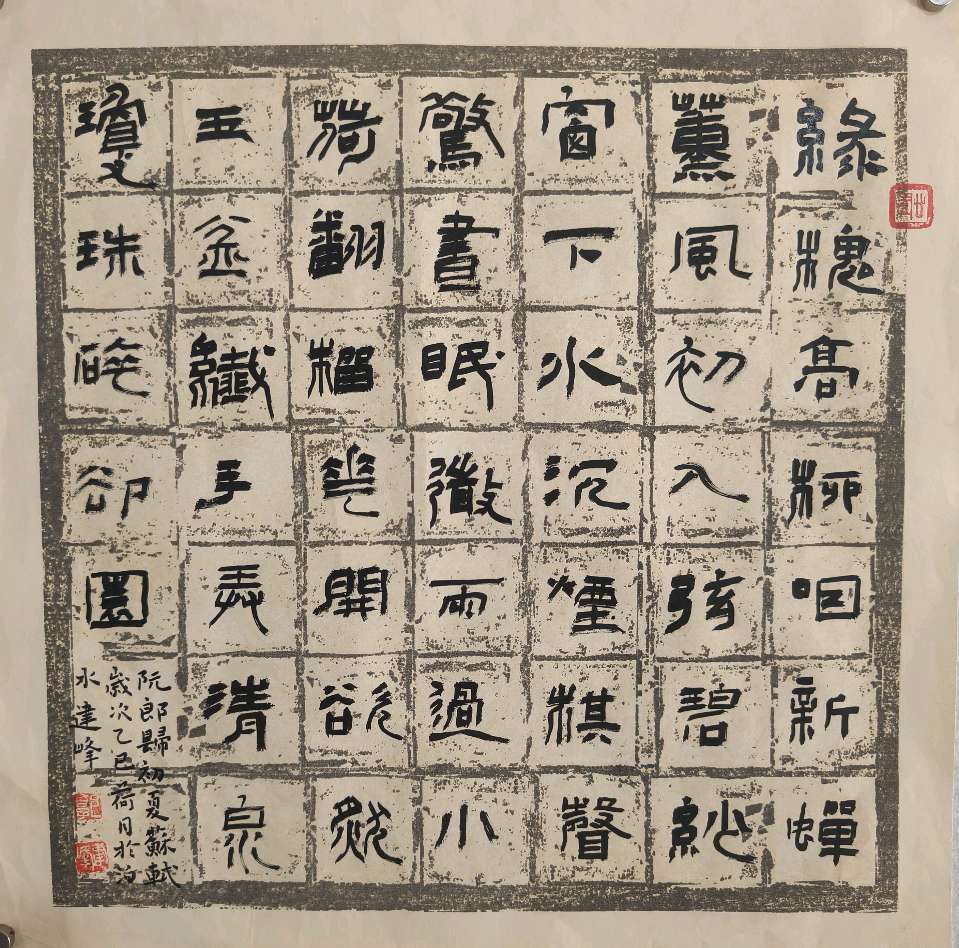 綠槐高柳咽新蟬
薰風初入弦碧紗
窗下水沉煙棋聲
驚晝眠微雨過小
荷翻榴花開欲然
玉盆纖手弄清泉
瓊珠碎卻圓
阮郎歸初夏蘇軾
歲次乙巳荷月於泊
水建峰